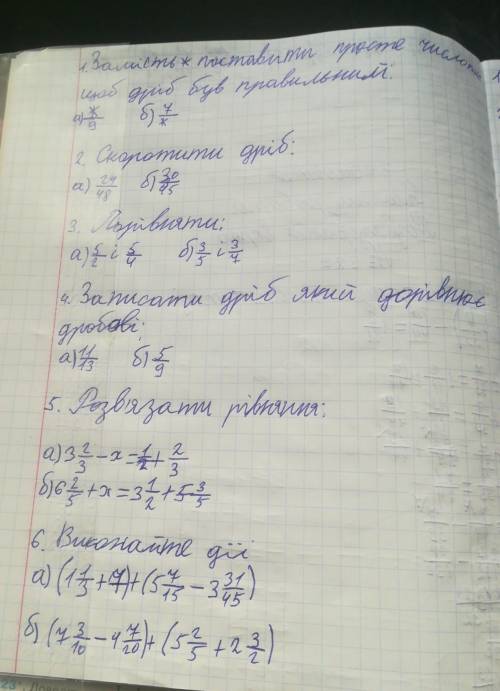 1. Замість * поставити просте число
щоб дріб був правильним.
а) */9 б) 7/*
2. Скоротити дріб:
а) 24/48 б) 30/45
3. Порівняти:
а) 5/2 і 5/4 б) 3/5 і 3/7
4. Записати дріб який дорівнює
дробові:
а) 11/13 б) 5/9
5. Розв'язати рівняння:
а) 3 2/3 - x = 1/2 + 2/3
б) 6 2/5 + x = 3 1/2 + 5 3/5
6. Виконайте дії
а) (1 1/3 + 7) + (5 7/15 - 3 31/45)
б) (7 3/10 - 4 7/20) + (5 2/5 + 2 3/2)
23